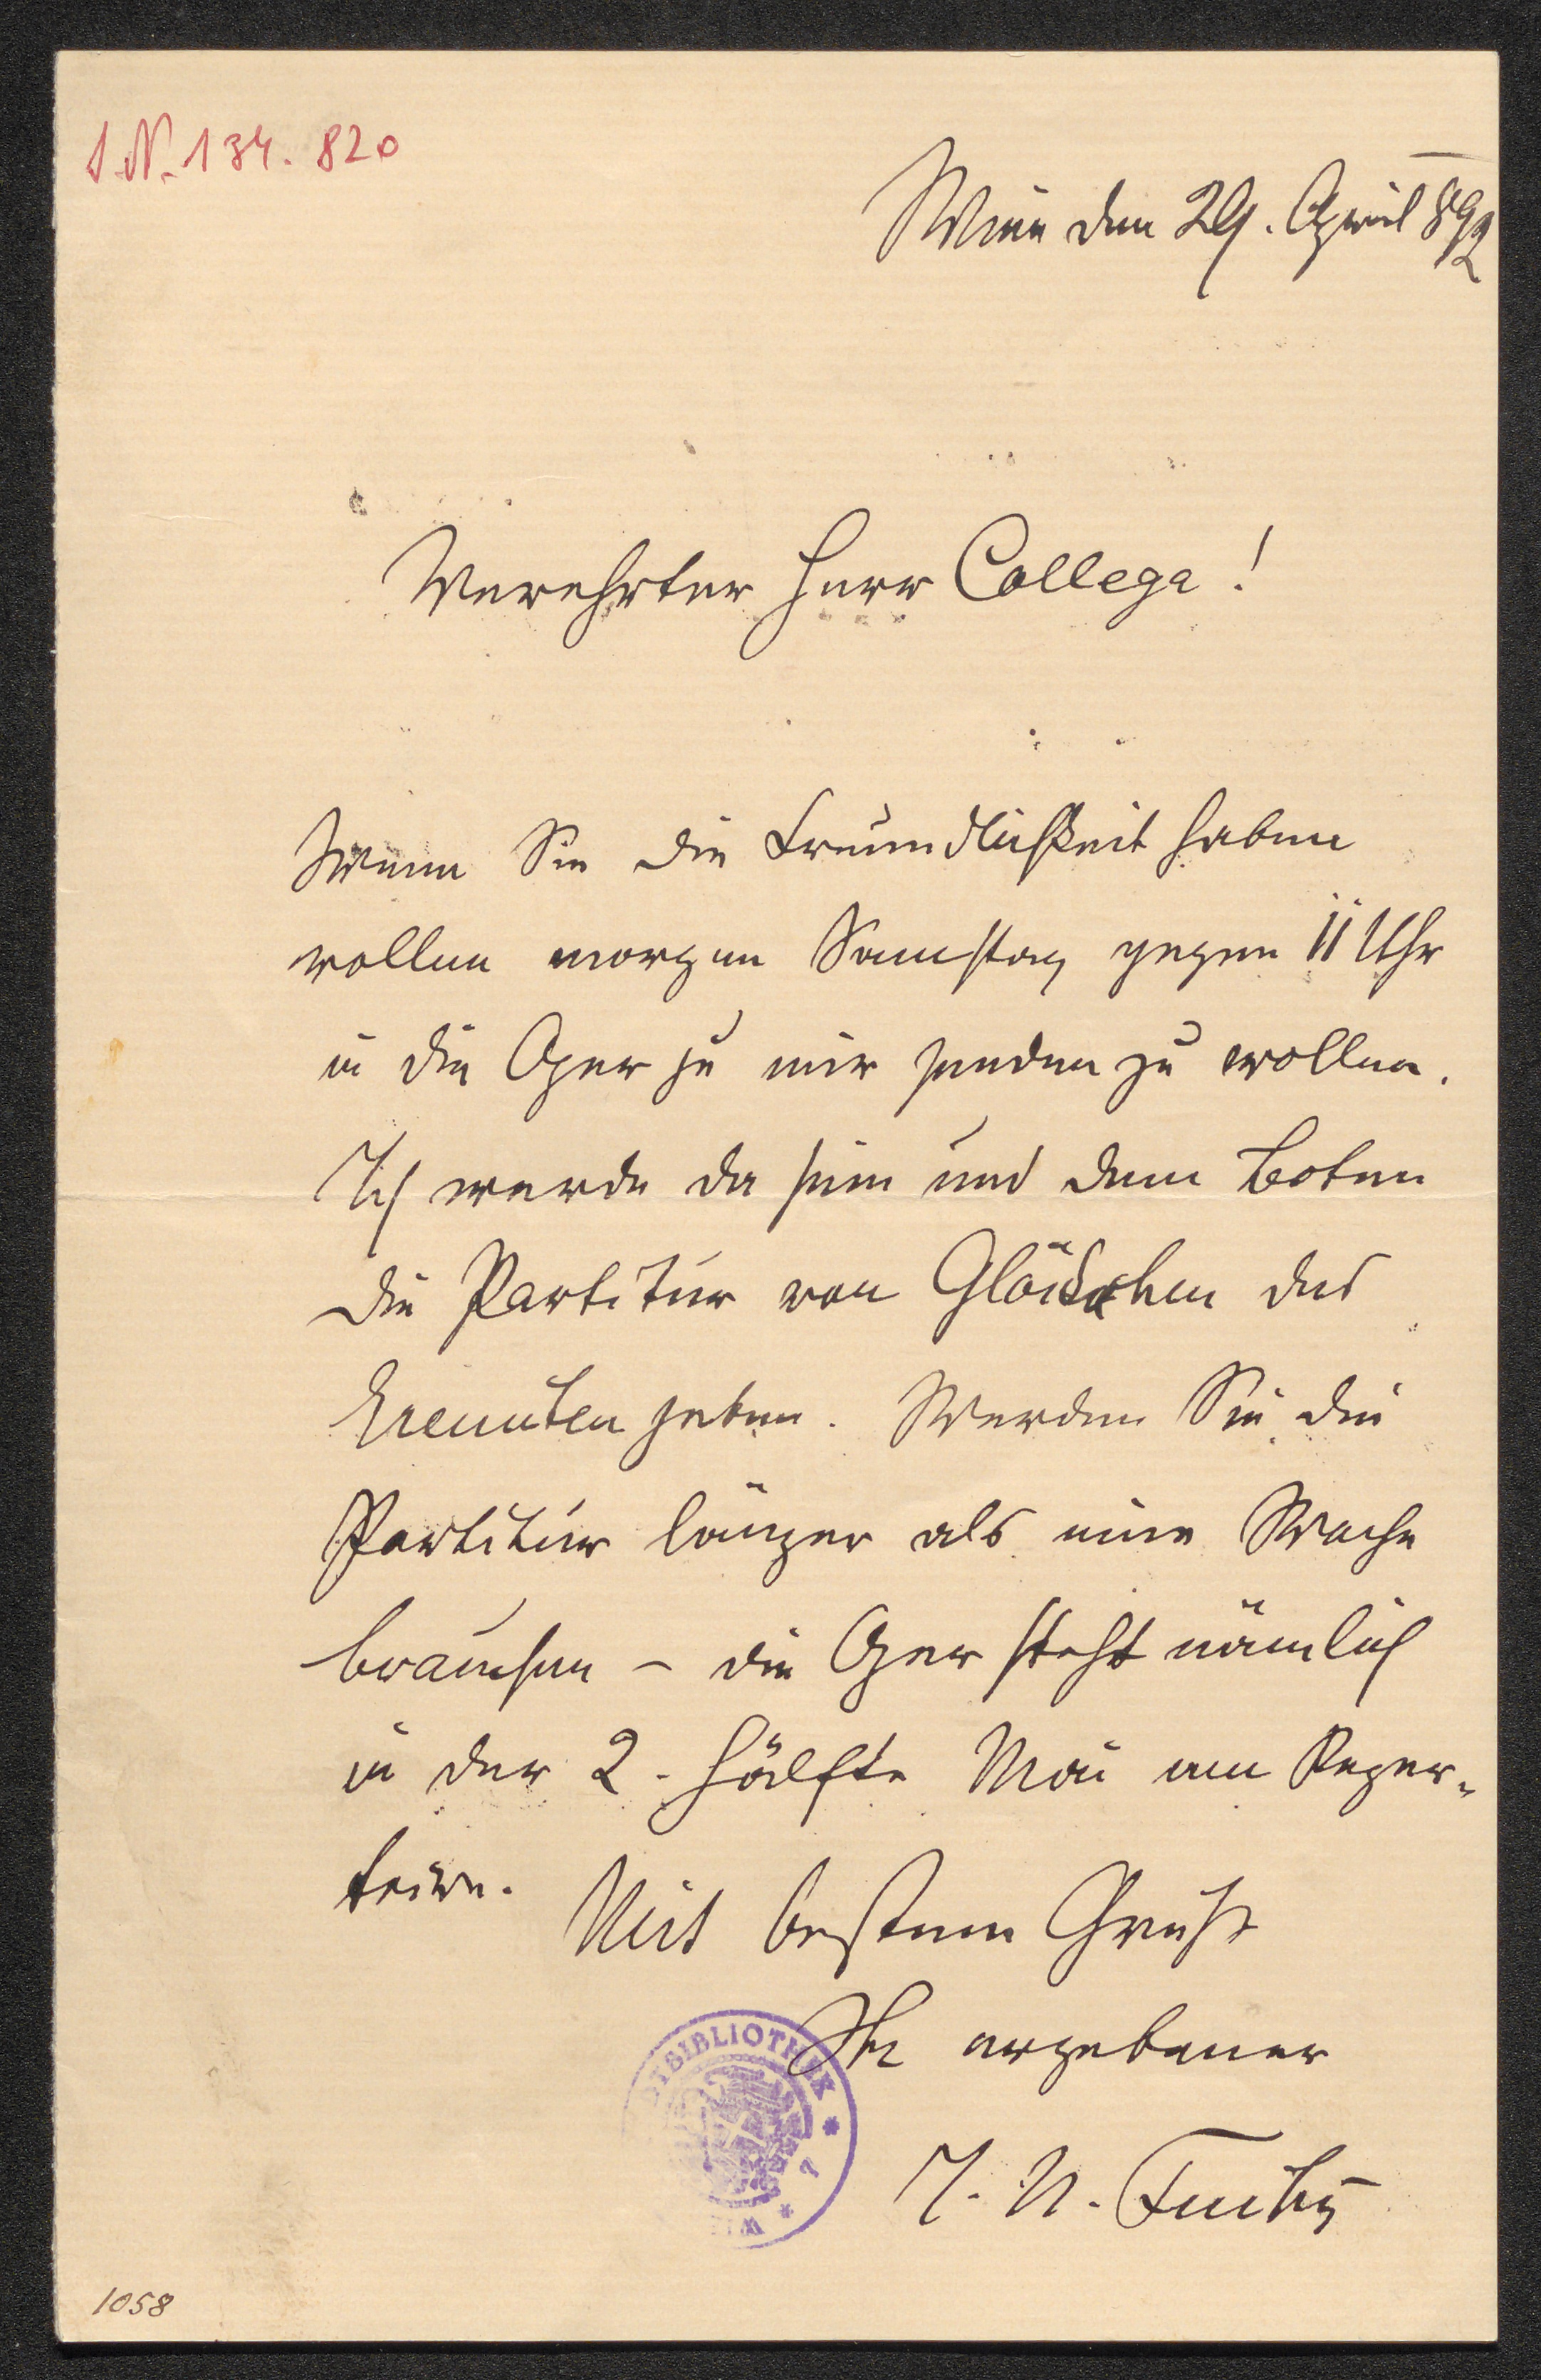 I.N. 134.820
Wien den 29. April 892
Verehrter Herr Collega!
Wenn Sie die Freundlichkeit haben
wollen morgen Samstag gegen 11 Uhr
in die Oper zu mir senden zu wollen.
Ich werde da sein und dem Boten
die Partitur von Glöckchen des
Eremiten geben. Werden Sie die
Partitur länger als eine Woche
brauchen – die Oper steht nämlich
in der 2. Hälfte Mai am Reper-
toire.
Mit bestem Gruß
Ihr ergebener
J. N. Fuchs
BIBLIOTHEK * 7 * WIE
1058